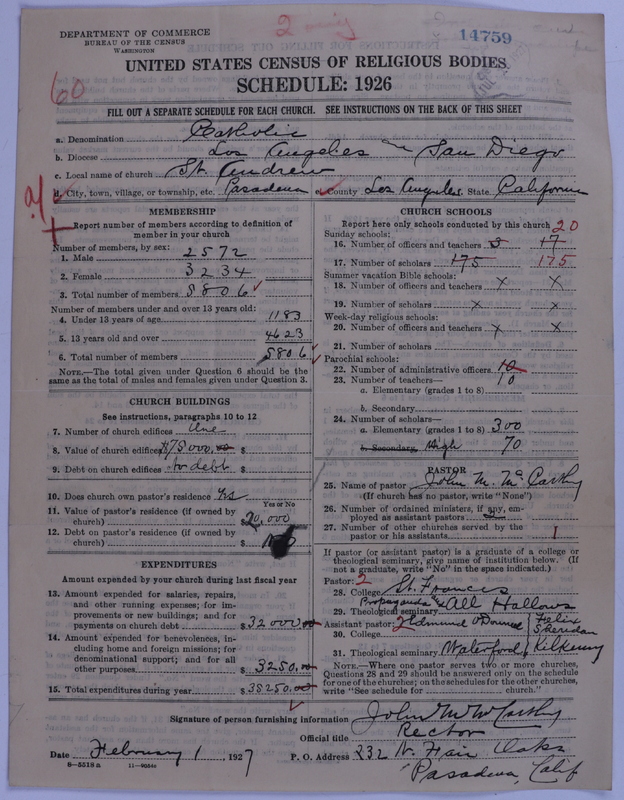 DEPARTMENT OF COMMERCE
BUREAU OF THE CENSUS
WASHINGTON
14759
UNITED STATES CENSUS OF RELIGIOUS BODIES
SCHEDULE: 1926
60
FILL OUT A SEPARATE SCHEDULE FOR EACH CHURCH. SEE INSTRUCTIONS ON THE BACK OF THIS SHEET
a. Denomination Catholic
b. Diocese Los Angeles San Diego
c. Local name of church St. Andrew
d. City, town, village, or township, etc. Pasadena e. County Los Angeles State California
MEMBERSHIP
Report number of members according to definition of
member in your church
Number of members, by sex:
1. Male 2572
2. Female 3234
3. Total number of members 5806
Number of members under and over 13 years old:
4. Under 13 years of age 1183
5. 13 years old and over 4623
6. Total number of members 5806
NOTE.—The total given under Question 6 should be
same as the total of males and females given under Question 3.
CHURCH BUILDINGS
See instructions, paragraphs 10 to 12
7. Number of church edifices One
8. Value of church edifices $75000.00 $
9. Debt on church edifices no debt $
10. Does church own pastor's residence Yes
Yes or No
11. Value of pastor's residence (if owned by
church) $20,000
12. Debt on pastor's residence (if owned by
church) $
EXPENDITURES
Amount expended by your church during last fiscal year
13. Amount expended for salaries, repairs,
and other running expenses; for im-
provements or new buildings; and for
payments on church debt $32000.00
14. Amount expended for benevolences, in-
cluding home and foreign missions; for
denominational support; and for all
other purposes $3250.00
15. Total expenditures during year $35250.00
CHURCH SCHOOLS
Report here only schools conducted by this church 20
Sunday schools:
16. Number of officers and teachers 5 17
17. Number of scholars 175 175
Summer vacation Bible schools:
18. Number of officers and teachers x x
19. Number of scholars x x
Week-day religious schools:
20. Number of officers and teachers x x
21. Number of scholars
Parochial schools:
22. Number of administrative officers 10
23. Number of teachers— 10
a. Elementary (grades 1 to 8)
b. Secondary
24. Number of scholars—
a. Elementary (grades 1 to 8) 300
b. Secondary High 70
PASTOR
25. Name of pastor John M. McCarthy
(If church has no pastor, write "None")
26. Number of ordained ministers, if any, em-
ployed as assistant pastors 2
27. Number of other churches served by the
pastor or his assistants 1
If pastor (or assistant pastor) is a graduate of a college or
theological seminary, give name of institution below. (If
not a graduate, write "No" in the space indicated.)
Pastor: 2
28. College St. Frances
29. Theological seminary Propaganda All Hallows
Assistant pastor: 2 Edmund O'Donnell Felix Sheridan
30. College
31. Theological seminary Waterford Kilkenny
NOTE.—Where one pastor serves two or more churches,
Questions 28 and 29 should be answered only on the schedule
for one of the churches; on the schedules for the other churches,
write "See schedule for church."
Signature of person furnishing information John M McCarthy
Official title Rector
Date February 1, 1927 P. O. Address 232 N. Fair Oaks
8-5518 a
Pasadena, Calif